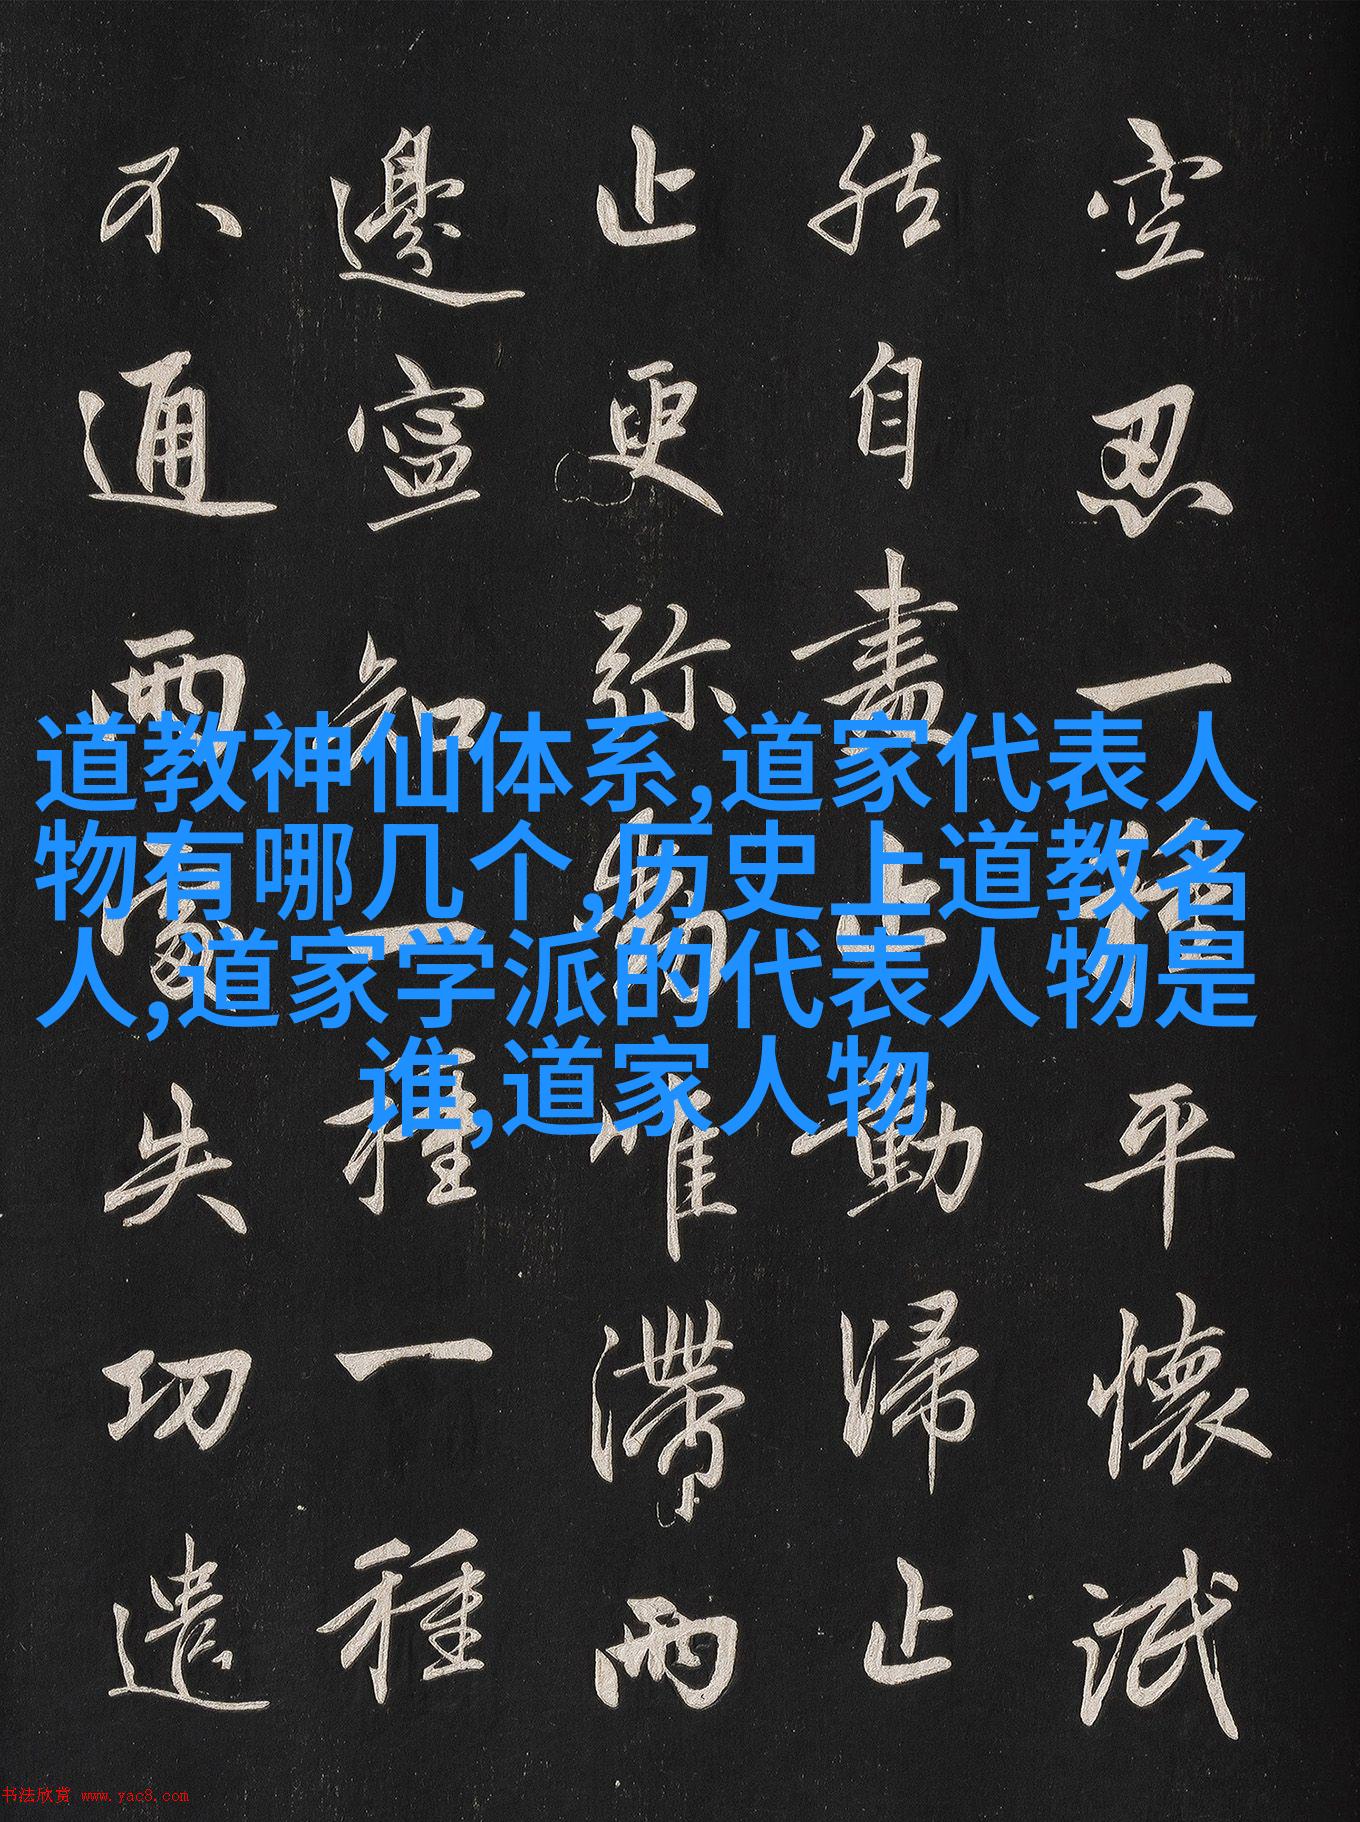 空忍一種平懷泯
然自盡止動歸止
止更弥動唯滯兩
邊寧知一種一種
不通兩處失功遣
道教神仙体系,道家代表人
物有哪几个,历史上道教名
人,道家学派的代表人物是
谁,道家人物
书法欣赏 www.yac8.com